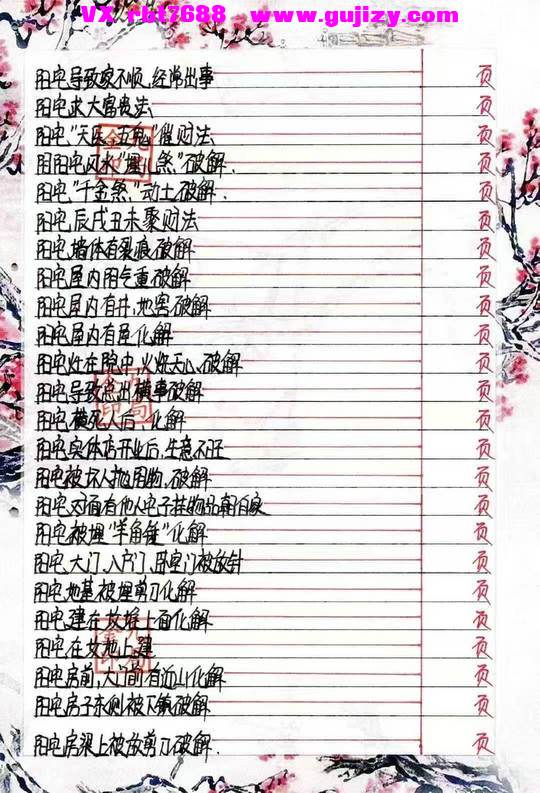 VX rbt7688  www.gujizy.com
阳宅导致家不顺，经常出事 页
阳宅求大富贵法 页
阳宅"天医、五鬼"催财法 页
阴阳宅风水"埋儿煞"破解. 页
阳宅"千金煞"，动土破解. 页
阳宅辰戌丑未聚财法 页
阳宅墙体有裂痕破解 页
阳宅屋内阴气重破解 页
阳宅屋内有井，地窖破解 页
阳宅屋内有星化解 页
阳宅灶在院中，火烧天心破解 页
阳宅导致总出横事破解 页
阳宅横死人后，化解 页
阳宅实体店开业后，生意不旺 页
阳宅被坏人抛阴物，破解 页
阳宅对面有他人宅子挂物品朝自家 页
阳宅被埋"羊角锤"化解 页
阳宅大门、入户门、卧室门被放针 页
阳宅地基被埋剪刀化解 页
阳宅建在坟堆上面化解 页
阳宅在坟地上建 页
阳宅房前，大门前有近山化解 页
阳宅房子东侧被下镇破解 页
阳宅房梁上被放剪刀破解. 页